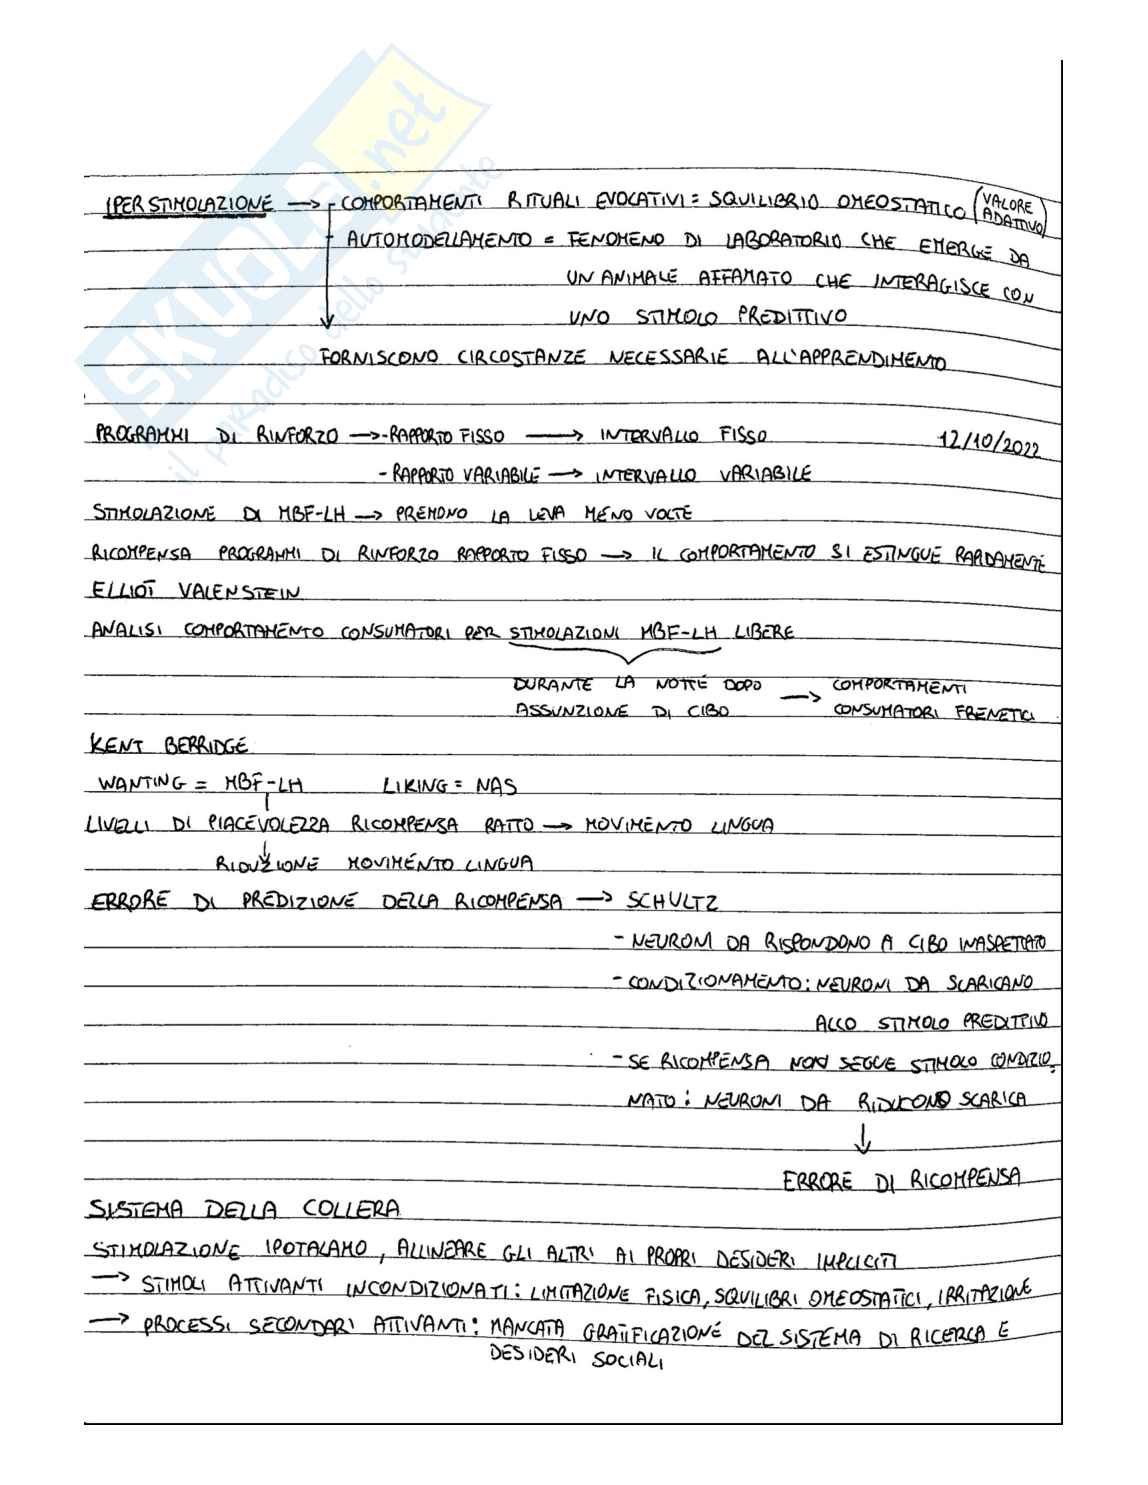 SKUOLA.net
il paradiso dello studente
IPERSTIMOLAZIONE → - COMPORTAMENTI RITUALI EVOCATIVI = SQUILIBRIO OMEOSTATICO (VALORE ADATTIVO)
AUTOMODELLAMENTO = FENOMENO DI LABORATORIO CHE EMERGE DA
UN ANIMALE AFFAMATO CHE INTERAGISCE CON
UNO STIMOLO PREDITTIVO
FORNISCONO CIRCOSTANZE NECESSARIE ALL'APPRENDIMENTO
PROGRAMMI DI RINFORZO → - RAPPORTO FISSO → INTERVALLO FISSO 12/10/2022
- RAPPORTO VARIABILE → INTERVALLO VARIABILE
STIMOLAZIONE DI MBF-LH → PREMONO LA LEVA MENO VOLTE
RICOMPENSA PROGRAMMI DI RINFORZO RAPPORTO FISSO → IL COMPORTAMENTO SI ESTINGUE RARDAMENTE
ELLIOT VALENSTEIN
ANALISI COMPORTAMENTO CONSUMATORI PER STIMOLAZIONI MBF-LH LIBERE
DURANTE LA NOTTE DOPO → COMPORTAMENTI
ASSUNZIONE DI CIBO CONSUMATORI FRENETICI
KENT BERRIDGE
WANTING = MBF-LH LIKING = NAS
LIVELLI DI PIACEVOLEZZA RICOMPENSA RATTO → MOVIMENTO LINGUA
↓
RIDUZIONE MOVIMENTO LINGUA
ERRORE DI PREDIZIONE DELLA RICOMPENSA → SCHULTZ
- NEURONI DA RISPONDONO A CIBO INASPETTATO
- CONDIZIONAMENTO: NEURONI DA SCARICANO
ALLO STIMOLO PREDITTIVO
- SE RICOMPENSA NON SEGUE STIMOLO CONDIZIO-
NATO: NEURONI DA RIDUCONO SCARICA
↓
ERRORE DI RICOMPENSA
SISTEMA DELLA COLLERA
STIMOLAZIONE IPOTALAMO, ALLINEARE GLI ALTRI AI PROPRI DESIDERI IMPLICITI
→ STIMOLI ATTIVANTI INCONDIZIONATI: LIMITAZIONE FISICA, SQUILIBRI OMEOSTATICI, IRRITAZIONE
→ PROCESSI SECONDARI ATTIVANTI: MANCATA GRATIFICAZIONE DEL SISTEMA DI RICERCA E
DESIDERI SOCIALI